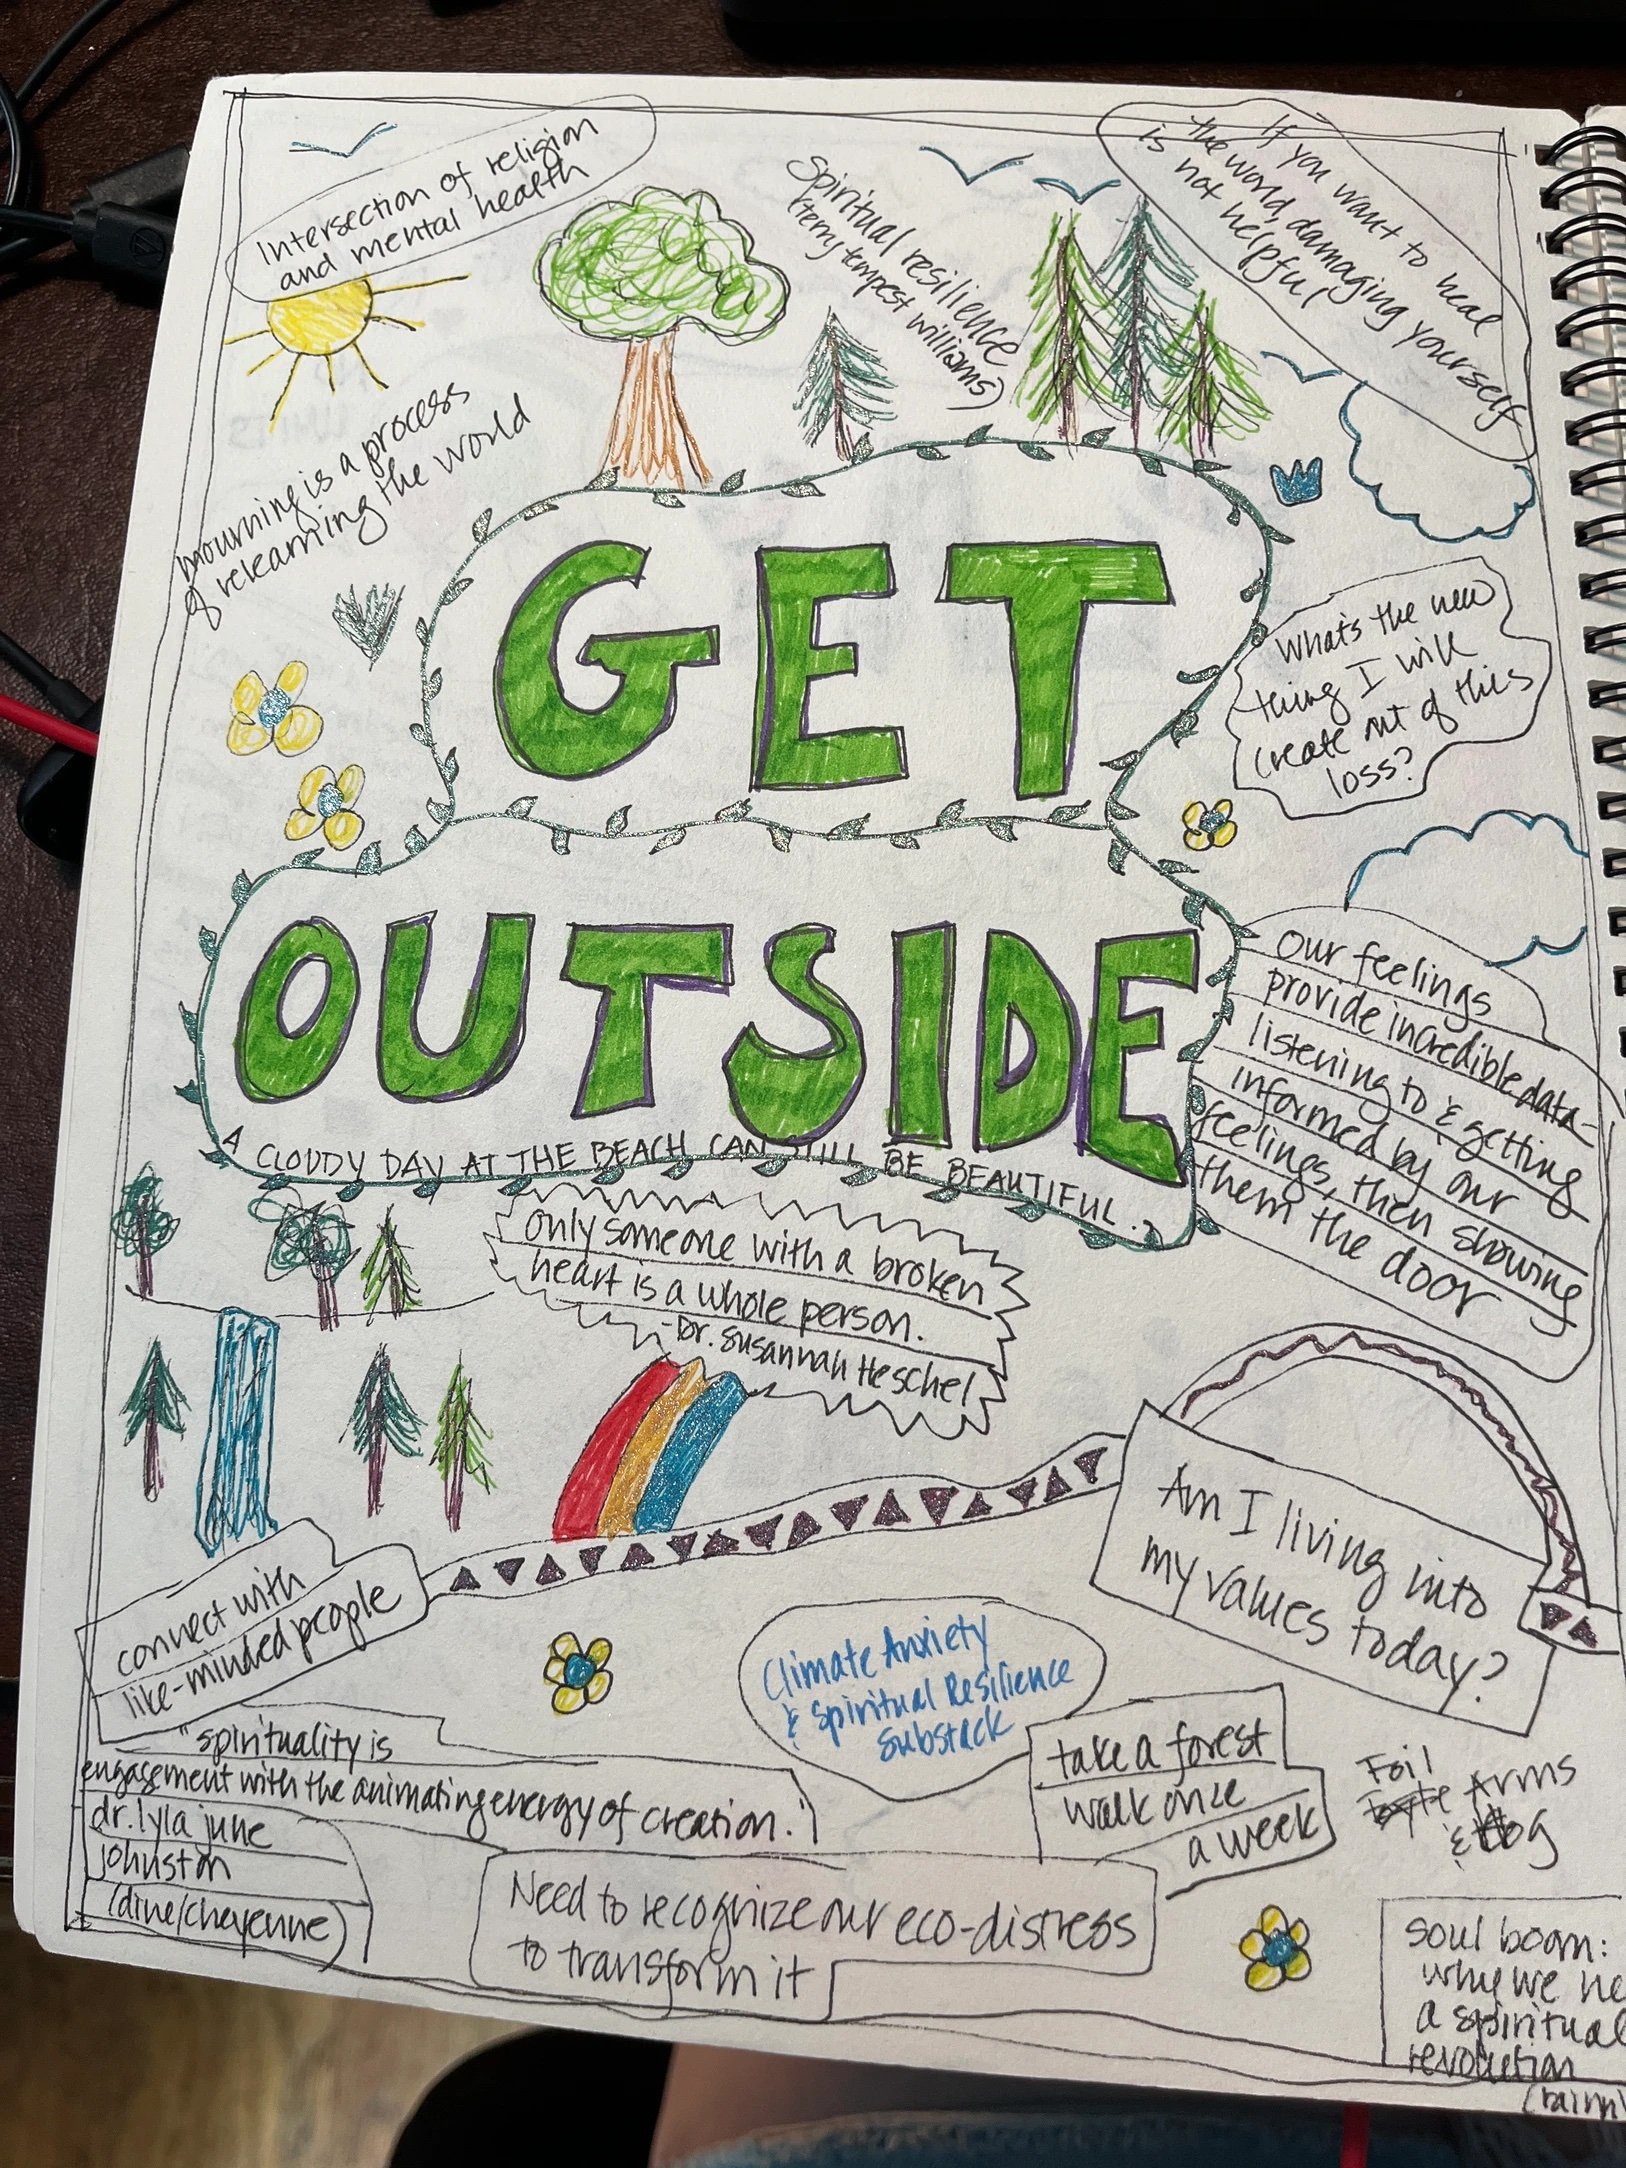 Intersection of religion
and mental health
Spiritual resilience
(terry tempest williams)
If you want to heal
the world, damaging yourself
is not helpful
mourning is a process
of relearning the world
GET
What's the new
thing I will
create out of this
loss?
OUTSIDE
A CLOUDY DAY AT THE BEACH CAN STILL BE BEAUTIFUL.
Our feelings
provide incredible data-
listening to & getting
informed by our
feelings, then showing
them the door
Only someone with a broken
heart is a whole person.
-Dr. Susannah Heschel
Am I living into
my values today?
connect with
like-minded people
Climate Anxiety
& Spiritual Resilience
Substack
"spirituality is
engagement with the animating energy of creation."
dr. lyla june
johnston
(dine/cheyenne)
take a forest
walk once
a week
Foil
Arms
& Hog
Need to recognize our eco-distress
to transform it
soul boom:
why we
a spiritual
revolution